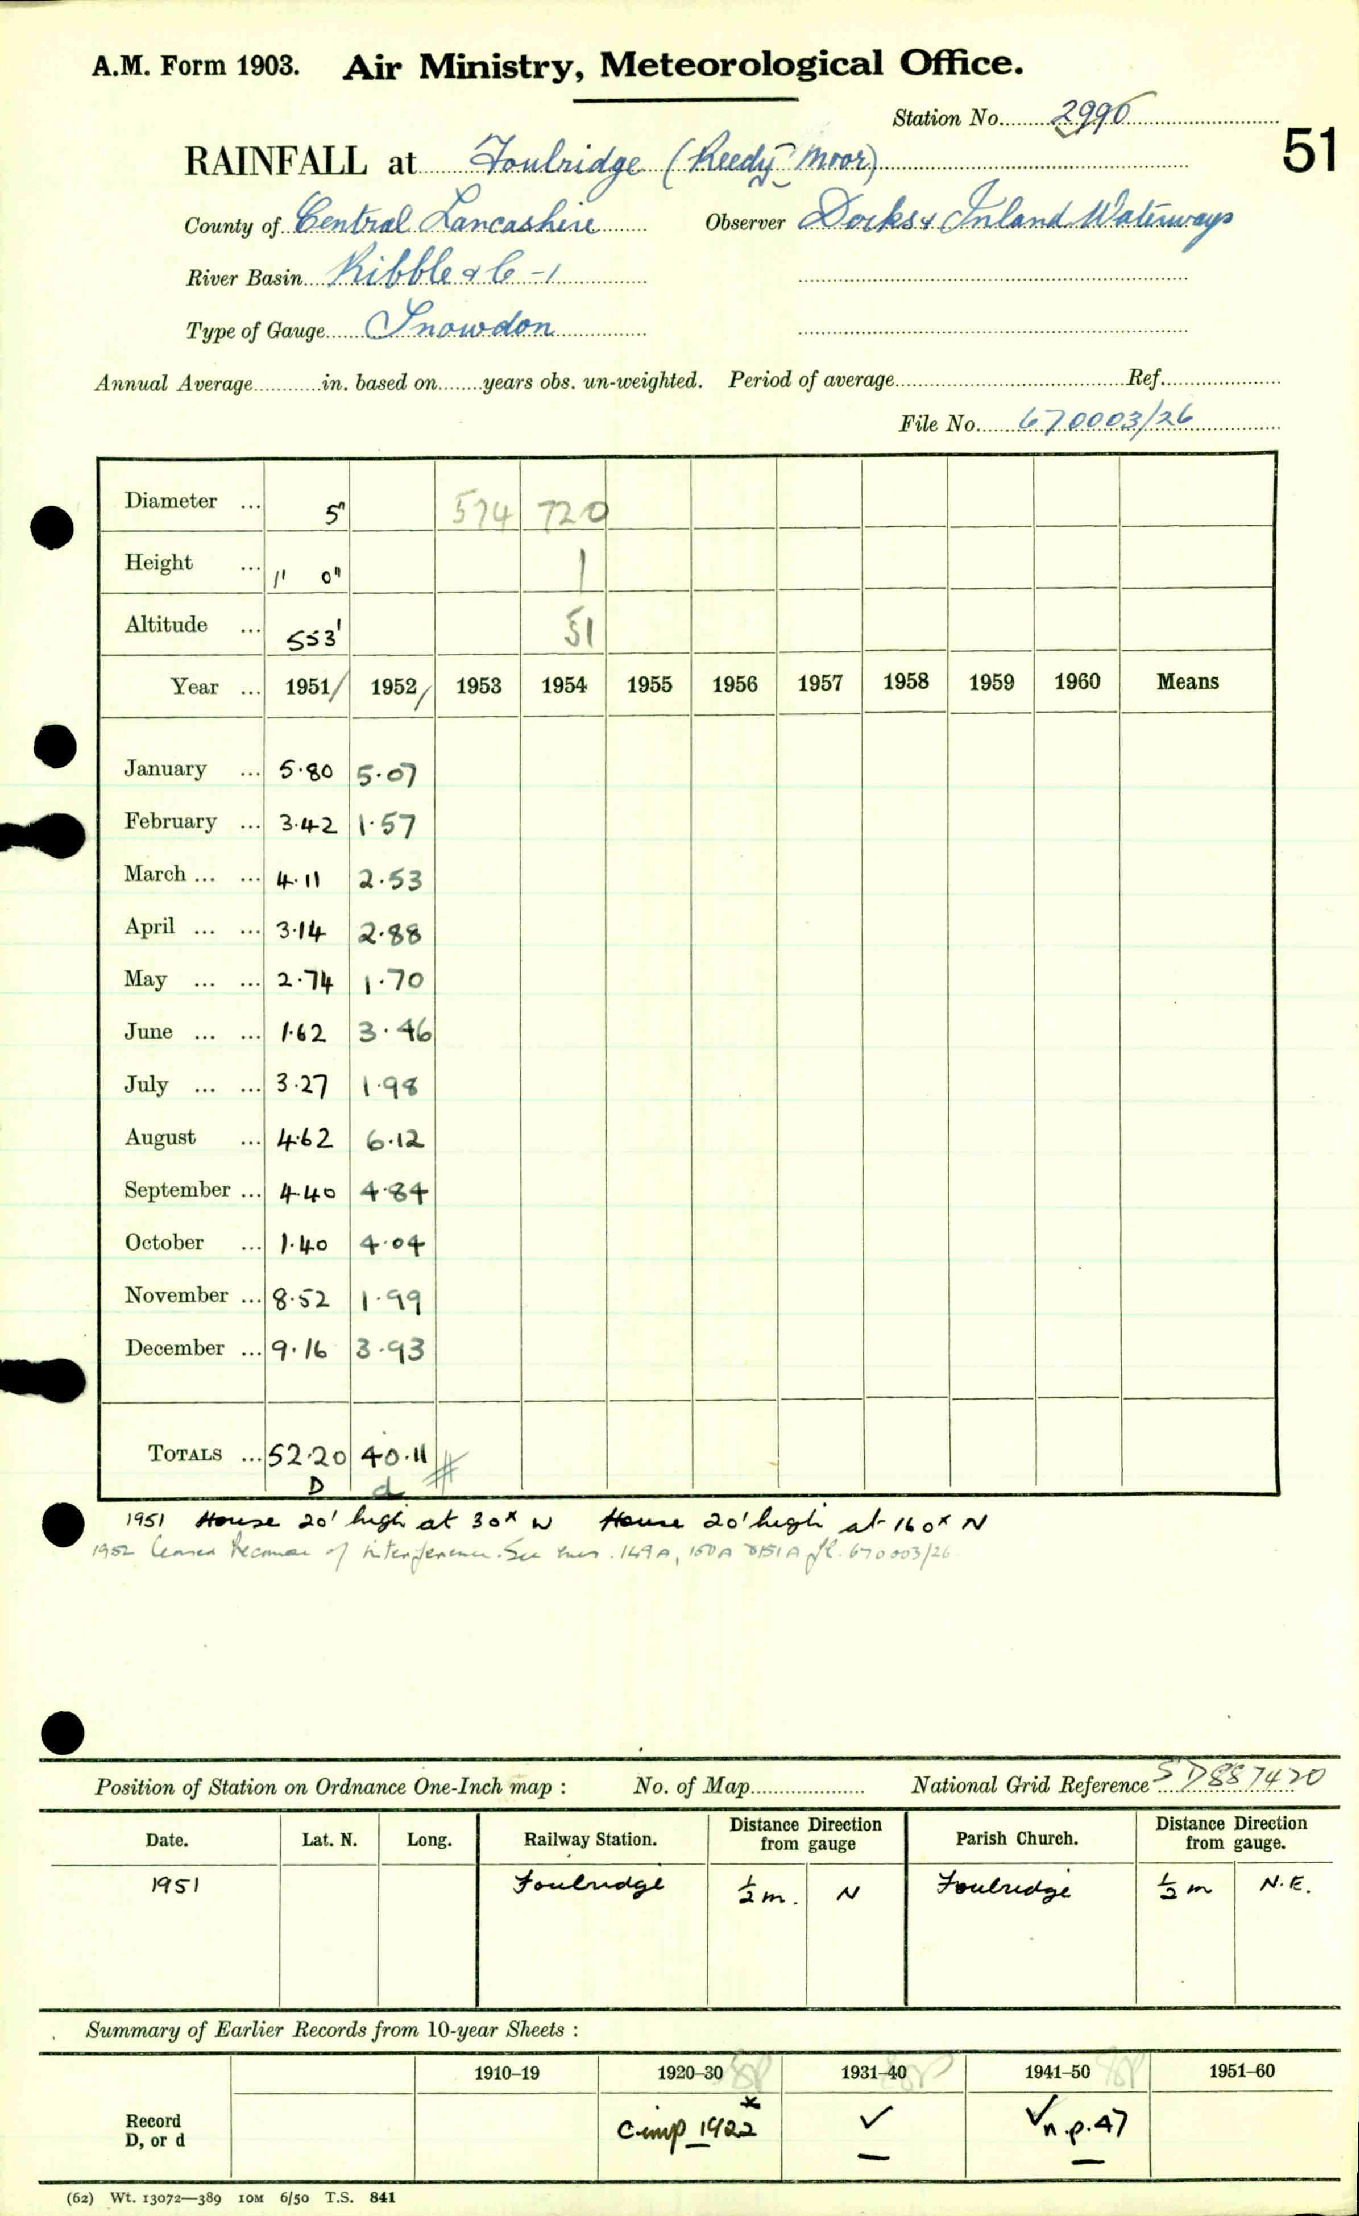 A.M. Form 1903. Air Ministry, Meteorological Office.
Station No. 2990
51
RAINFALL at Foulridge (Reedy Moor)
County of Central Lancashire Observer Docks & Inland Waterways
River Basin Ribble & C-1
Type of Gauge Snowdon
Annual Average in. based on years obs. un-weighted. Period of average Ref.
File No. 670003/26
Diameter ... 5" 574 720
Height ... 1' 0" 1
Altitude ... 553' 51
Year ... 1951/ 1952/ 1953 1954 1955 1956 1957 1958 1959 1960 Means
January ... 5.80 5.07
February ... 3.42 1.57
March ... ... 4.11 2.53
April ... ... 3.14 2.88
May ... ... 2.74 1.70
June ... ... 1.62 3.46
July ... ... 3.27 1.98
August ... 4.62 6.12
September ... 4.40 4.84
October ... 1.40 4.04
November ... 8.52 1.99
December ... 9.16 3.93
TOTALS ... 52.20 40.11 #
D d
1951 House 20' high at 30x W House 20' high at 160x N
1952 because of interference. See 149A, 150A & 151A 670003/26
Position of Station on Ordnance One-Inch map : No. of Map National Grid Reference SD887420
Date. Lat. N. Long. Railway Station. Distance Direction from gauge Parish Church. Distance Direction from gauge.
1951 Foulridge ½ m. N Foulridge ½ m N.E.
Summary of Earlier Records from 10-year Sheets :
1910–19 1920–30 1931–40 1941–50 1951–60
Record D, or d Cimp 1922* ✓ — ✓ n.p. 47 —
(62) Wt. 13072—389 10M 6/50 T.S. 841